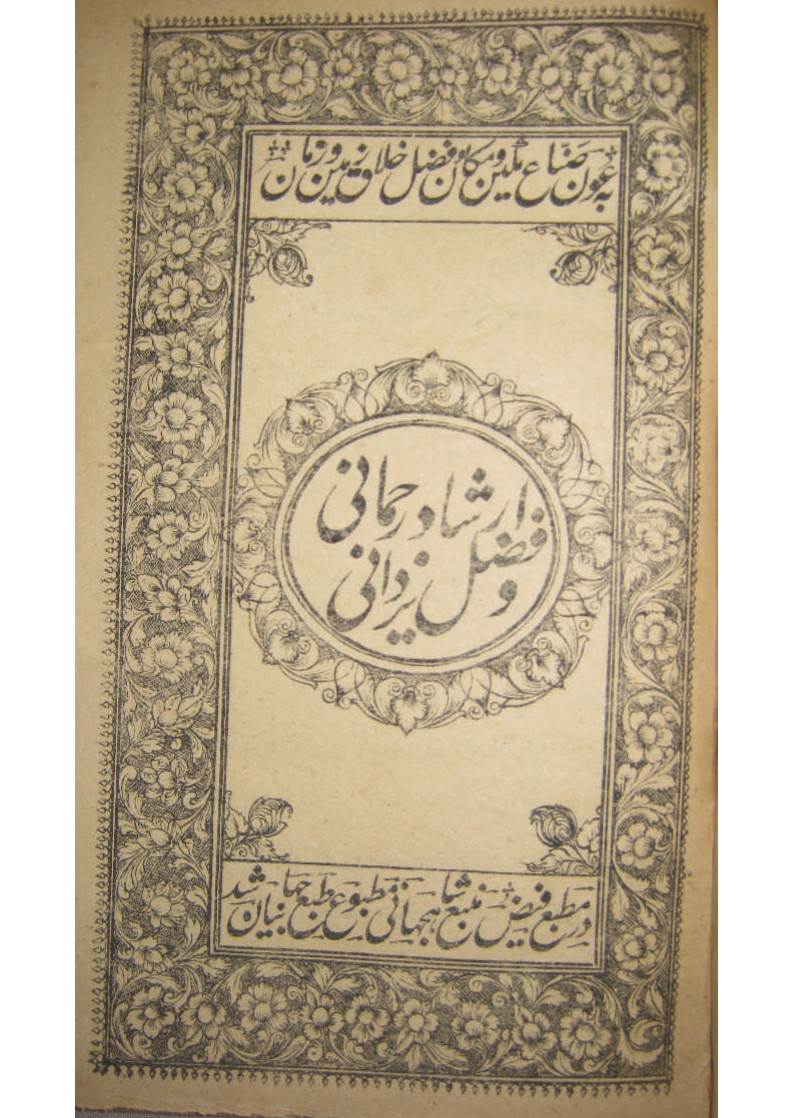 به عون صناع مکین و مکان و فضل خلاق زمین و زمان
ارشاد رحمانی
و فضل یزدانی
در مطبع فیض منبع شاهجهانی مطبوع طبع جهانیان شد